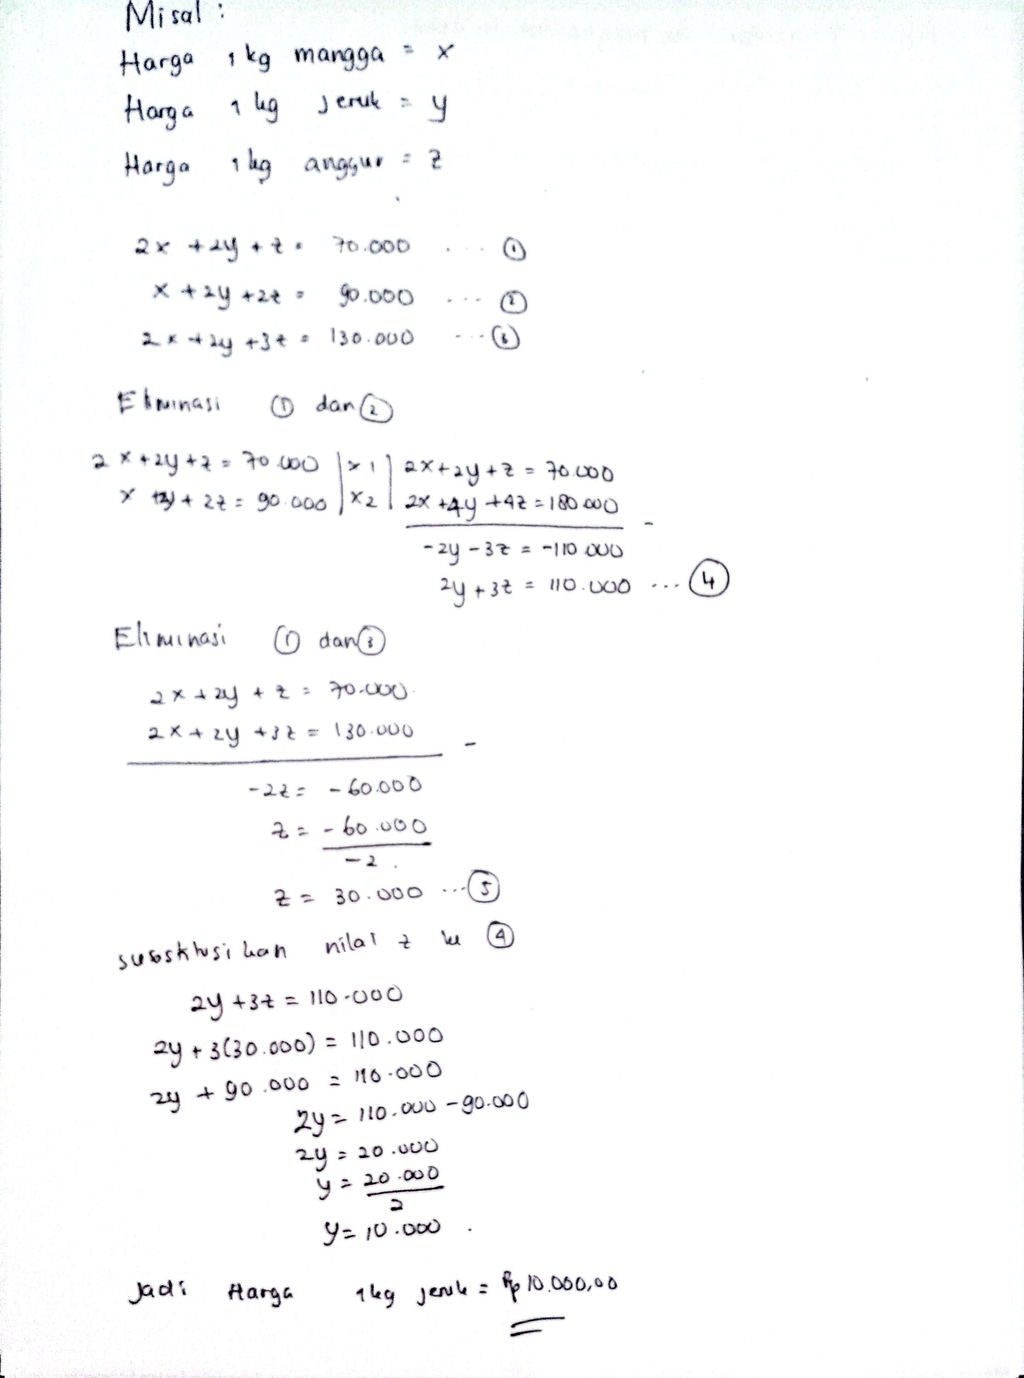 Misal :
Harga 1 kg mangga = x
Harga 1 kg jeruk = y
Harga 1 kg anggur = z
2x + 2y + z = 70.000 ... ①
x + 2y + 2z = 90.000 ... ②
2x + 2y + 3z = 130.000 ... ③
Eliminasi ① dan ②
2x + 2y + z = 70.000 | x 1 | 2x + 2y + z = 70.000
x + 2y + 2z = 90.000 | x 2 | 2x + 4y + 4z = 180.000 -
-2y - 3z = -110.000
2y + 3z = 110.000 ... ④
Eliminasi ① dan ③
2x + 2y + z = 70.000
2x + 2y + 3z = 130.000 -
-2z = -60.000
z = -60.000
-2
z = 30.000 ... ⑤
nilai z ke ④
2y + 3z = 110.000
2y + 3(30.000) = 110.000
2y + 90.000 = 110.000
2y = 110.000 - 90.000
2y = 20.000
y = 20.000
2
y = 10.000
Jadi Harga 1 kg jeruk = Rp 10.000,00